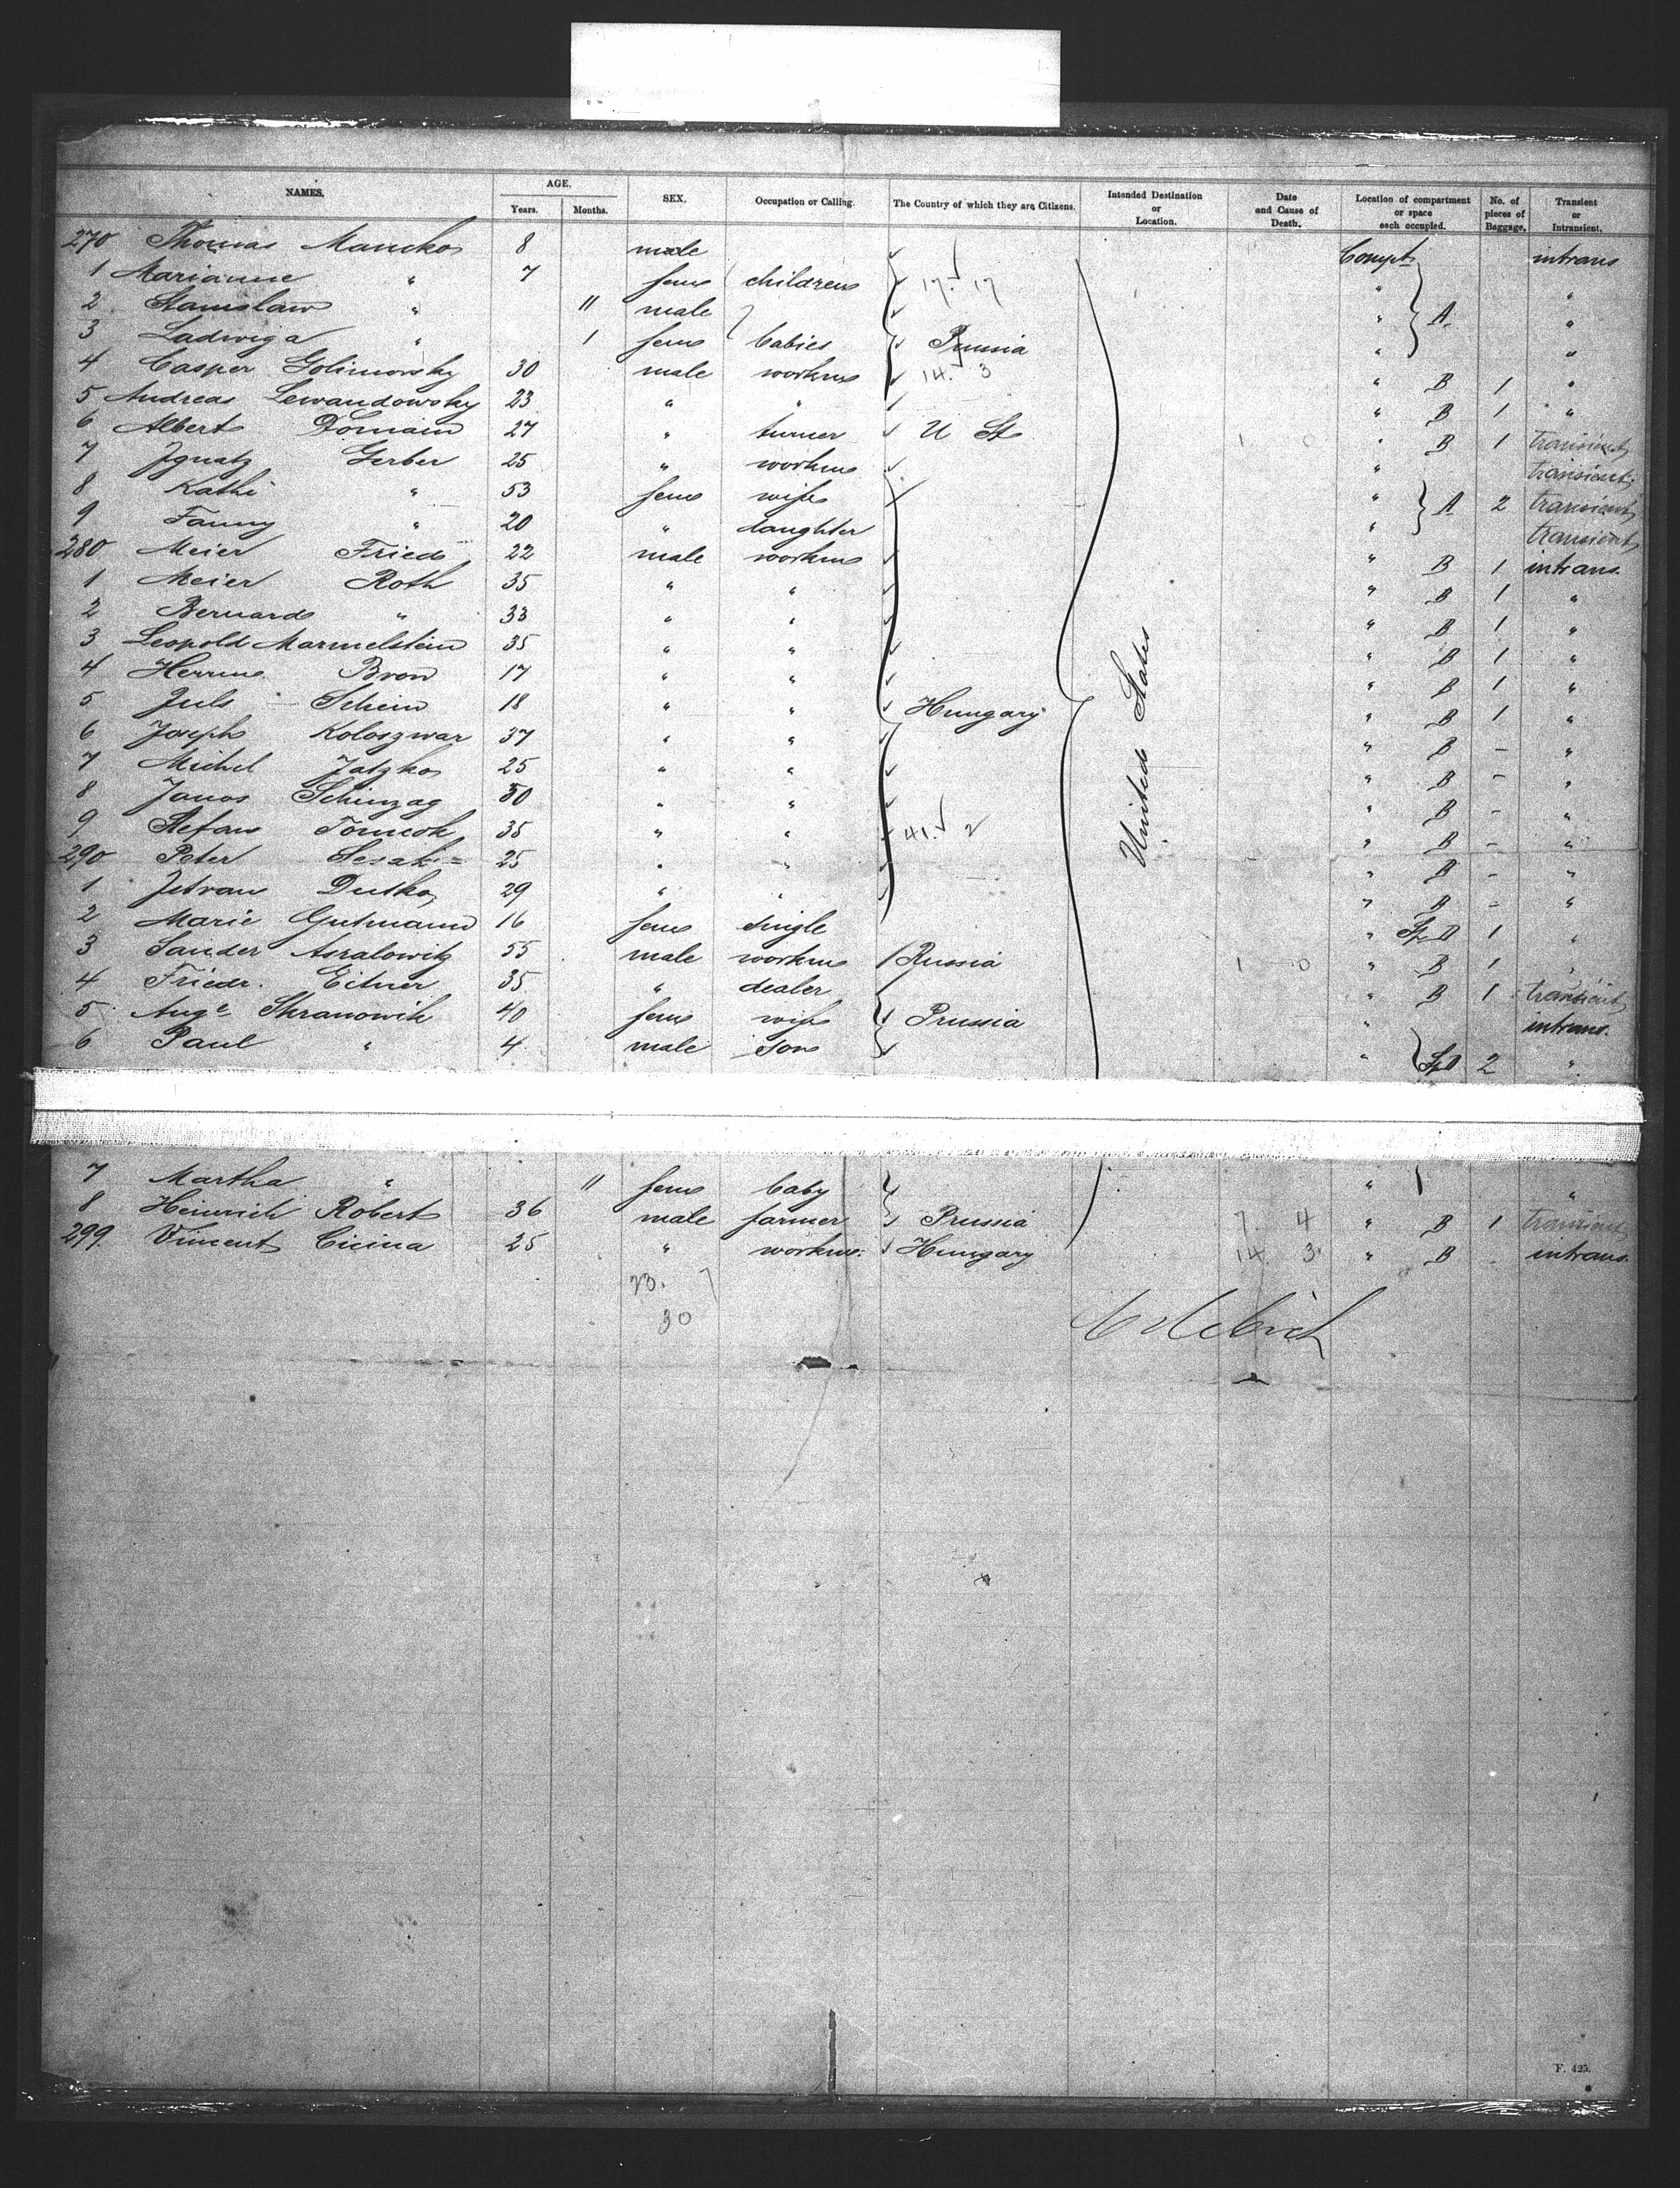 NAMES. AGE. SEX. Occupation or Calling. The Country of which they are Citizens. Intended Destination or Location. Date and Cause of Death. Location of compartment or space each occupied. No. of pieces of Baggage. Transient or Intransient.
Years. Months.
270 Thomas Mancko 8 male Compt intrans
1 Marianne " 7 fem children 17. 17 " "
2 Stanislaw " 11 male " A. "
3 Ladwiga " 1 fem babies Prussia " "
4 Casper Golimowsky 30 male workm 14. 3 " B 1 "
5 Andreas Lewandowsky 23 " " " B 1 "
6 Albert Domain 27 " turner U St 1 0 " B 1 transient
7 Ignatz Gerber 25 " workm " transient
8 Kathi " 53 fem wife " A 2 transient
9 Fanny " 20 " daughter " transient
280 Meier Fried 22 male workm " B 1 intrans.
1 Meier Roth 35 " " " B 1 "
2 Bernard " 33 " " " B 1 "
3 Leopold Marmelstein 35 " " " B 1 "
4 Herrm. Bron 17 " " " B 1 "
5 Juls Schein 18 " " Hungary " B 1 "
6 Joseph Koloszwar 37 " " " B - "
7 Michel Jatzko 25 " " " B - "
8 Janos Schinzag 30 " " United States " B - "
9 Stefan Tomcsk 35 " " 41. 2 " B - "
290 Peter 25 " " " B - "
1 Istvan Dutko 29 " " " B - "
2 Marie Gutmann 16 fem single " Sp D 1 "
3 Sander Asralowitz 55 male workm Russia 1 0 " B 1 "
4 Friedr. Eitner 35 " dealer " B 1 transient
5 Auge Shranowik 40 fem wife Prussia " intrans.
6 Paul " 4 male son " Sp D 2 "
7 Martha " 11 fem baby " "
8 Heinrich Robert 36 male farmer Prussia 7 4 " B 1 transient
299. Vincent Cicina 25 " workm. Hungary 14. 3 " B - intrans.
23. 7
30
F. 425.